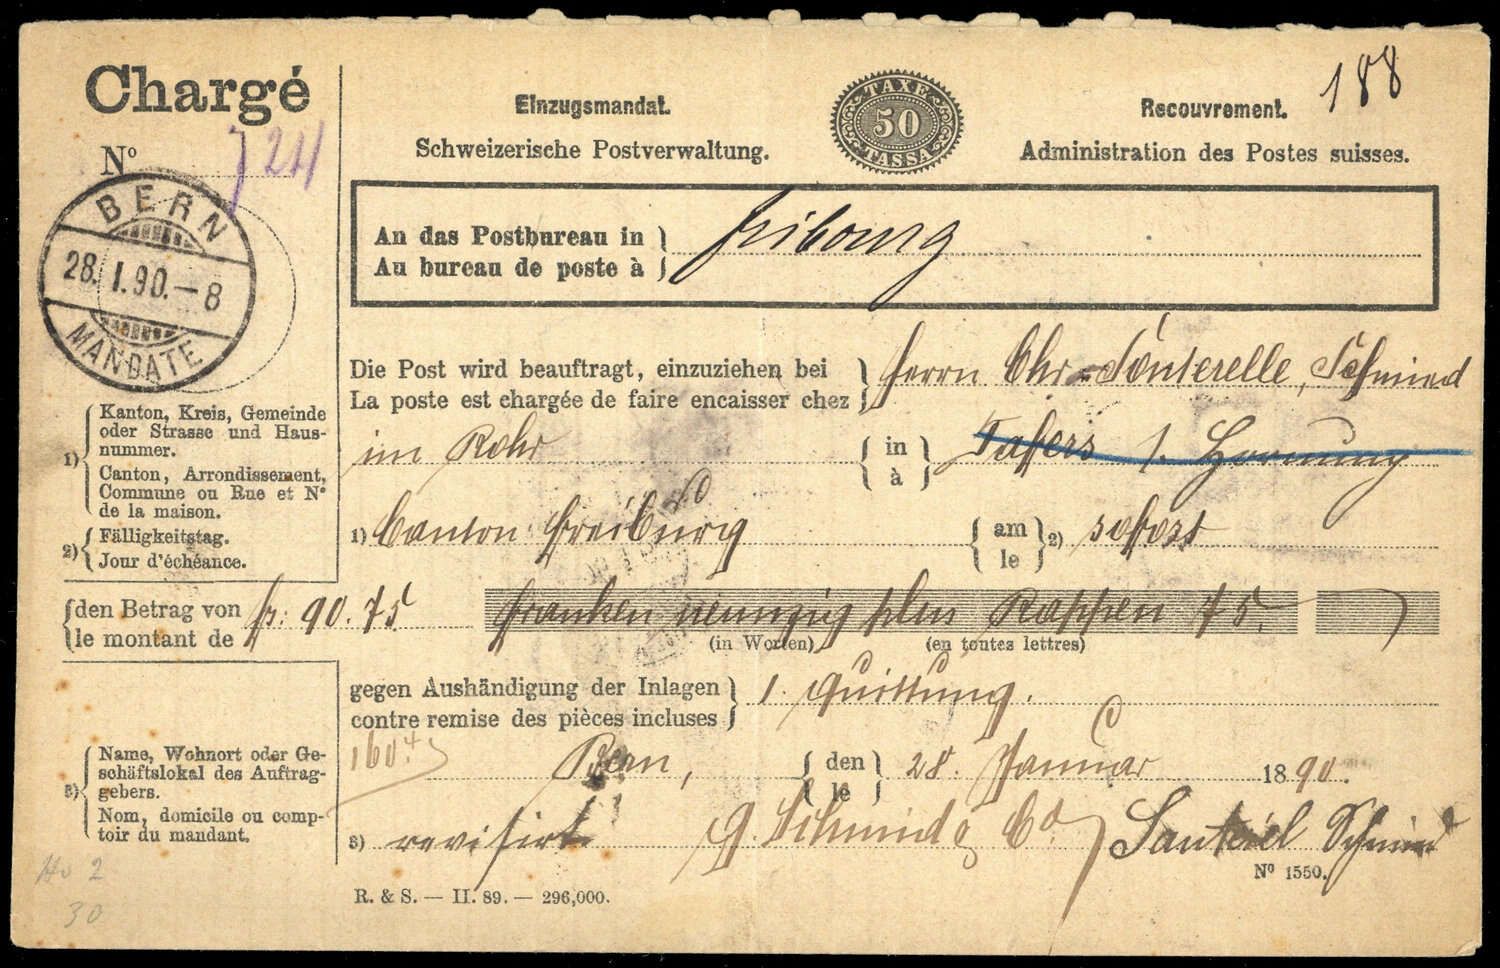 Chargé
Nº 724
Einzugsmandat.
Schweizerische Postverwaltung.
TAXE
50
TASSA
Recouvrement.
Administration des Postes suisses.
188
BERN
28. I. 90. – 8
MANDATE
An das Postbureau in
Au bureau de poste à
fribourg
Die Post wird beauftragt, einzuziehen bei
La poste est chargée de faire encaisser chez
Herrn Chr. Schmied
im Rohr
in
à
Tafers 1. Hornung
1) Kanton, Kreis, Gemeinde oder Strasse und Hausnummer.
Canton, Arrondissement, Commune ou Rue et Nº de la maison.
2) Fälligkeitstag.
Jour d'échéance.
1) Canton Freiburg
am
le
2) sofort
den Betrag von
le montant de
fr: 90.75
Franken neunzig plus Rappen 75.
(in Worten) (en toutes lettres)
gegen Aushändigung der Inlagen
contre remise des pièces incluses
1. Quittung.
Bern,
den
le
28. Januar 1890.
3) Name, Wohnort oder Geschäftslokal des Auftraggebers.
Nom, domicile ou comptoir du mandant.
3) revisirt
Schmid & Co
Nº 1550.
R. & S. — II. 89. — 296,000.
30